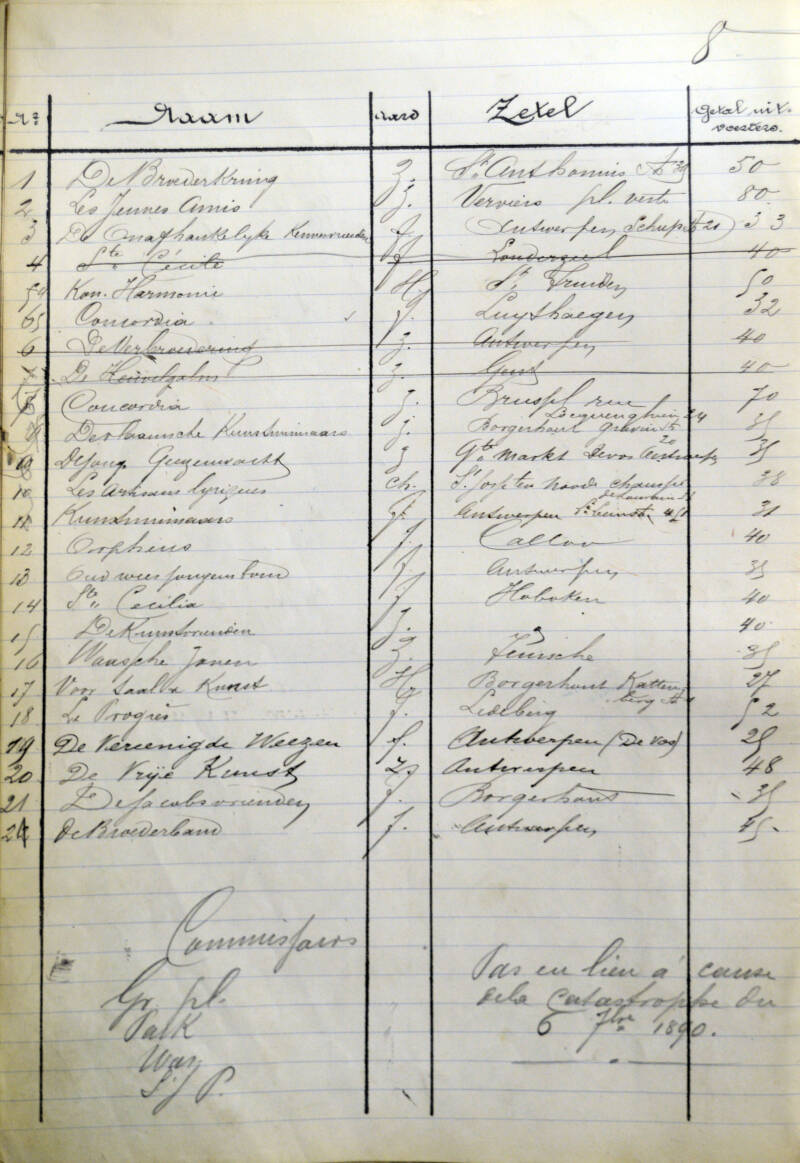 8
Nr Naam aard Zetel Getal uit-
voerders.
1 De Broederkring Z. St Anthonius 50
2 Les Jeunes Amis Z. Verviers pl. verte 80
3 De Onafhankelyke Antwerpen 33
4 Ste Cécile Londerzeel 40
Kon. Harmonie Hy St Truiden 50
Concordia Luythaegen 32
6 De Verbroedering Z. Antwerpen 40
De Z. Gent 40
8 Concordia Z. Brussel rue 70
24
De Vlaamsche Kunstminnaars Z. Borgerhout 35
20
De jong. Geuzenwacht Z Gte Markt Antwerpen 35
10 Les Artisans lyriques ch. St Josse ten Noode 38
11 Kunstminnaars Antwerpen 31
12 Orpheus Calloo 40
13 Oud weesjongensbond Antwerpen 35
14 Ste Cecilia Hoboken 40
15 De Kunstvrienden Z. ? 40.
16 Waasche Zonen Z. Temsche 35
17 Voor taal en Kunst Hy Borgerhout Katten 27
berg
18 Le Progrès Ledeberg 52
19 De Vereenigde Weezen Antwerpen (De Vos) 25
20 De Vrije Kunst Antwerpen 48
21 De Jacobsvrienden Borgerhout 35
De Broederband Antwerpen 45
Commissairs
Gr. pl.
Park
Way
St J P.
Pas eu lieu à cause
de la Catastrophe du
6 7bre 1890.